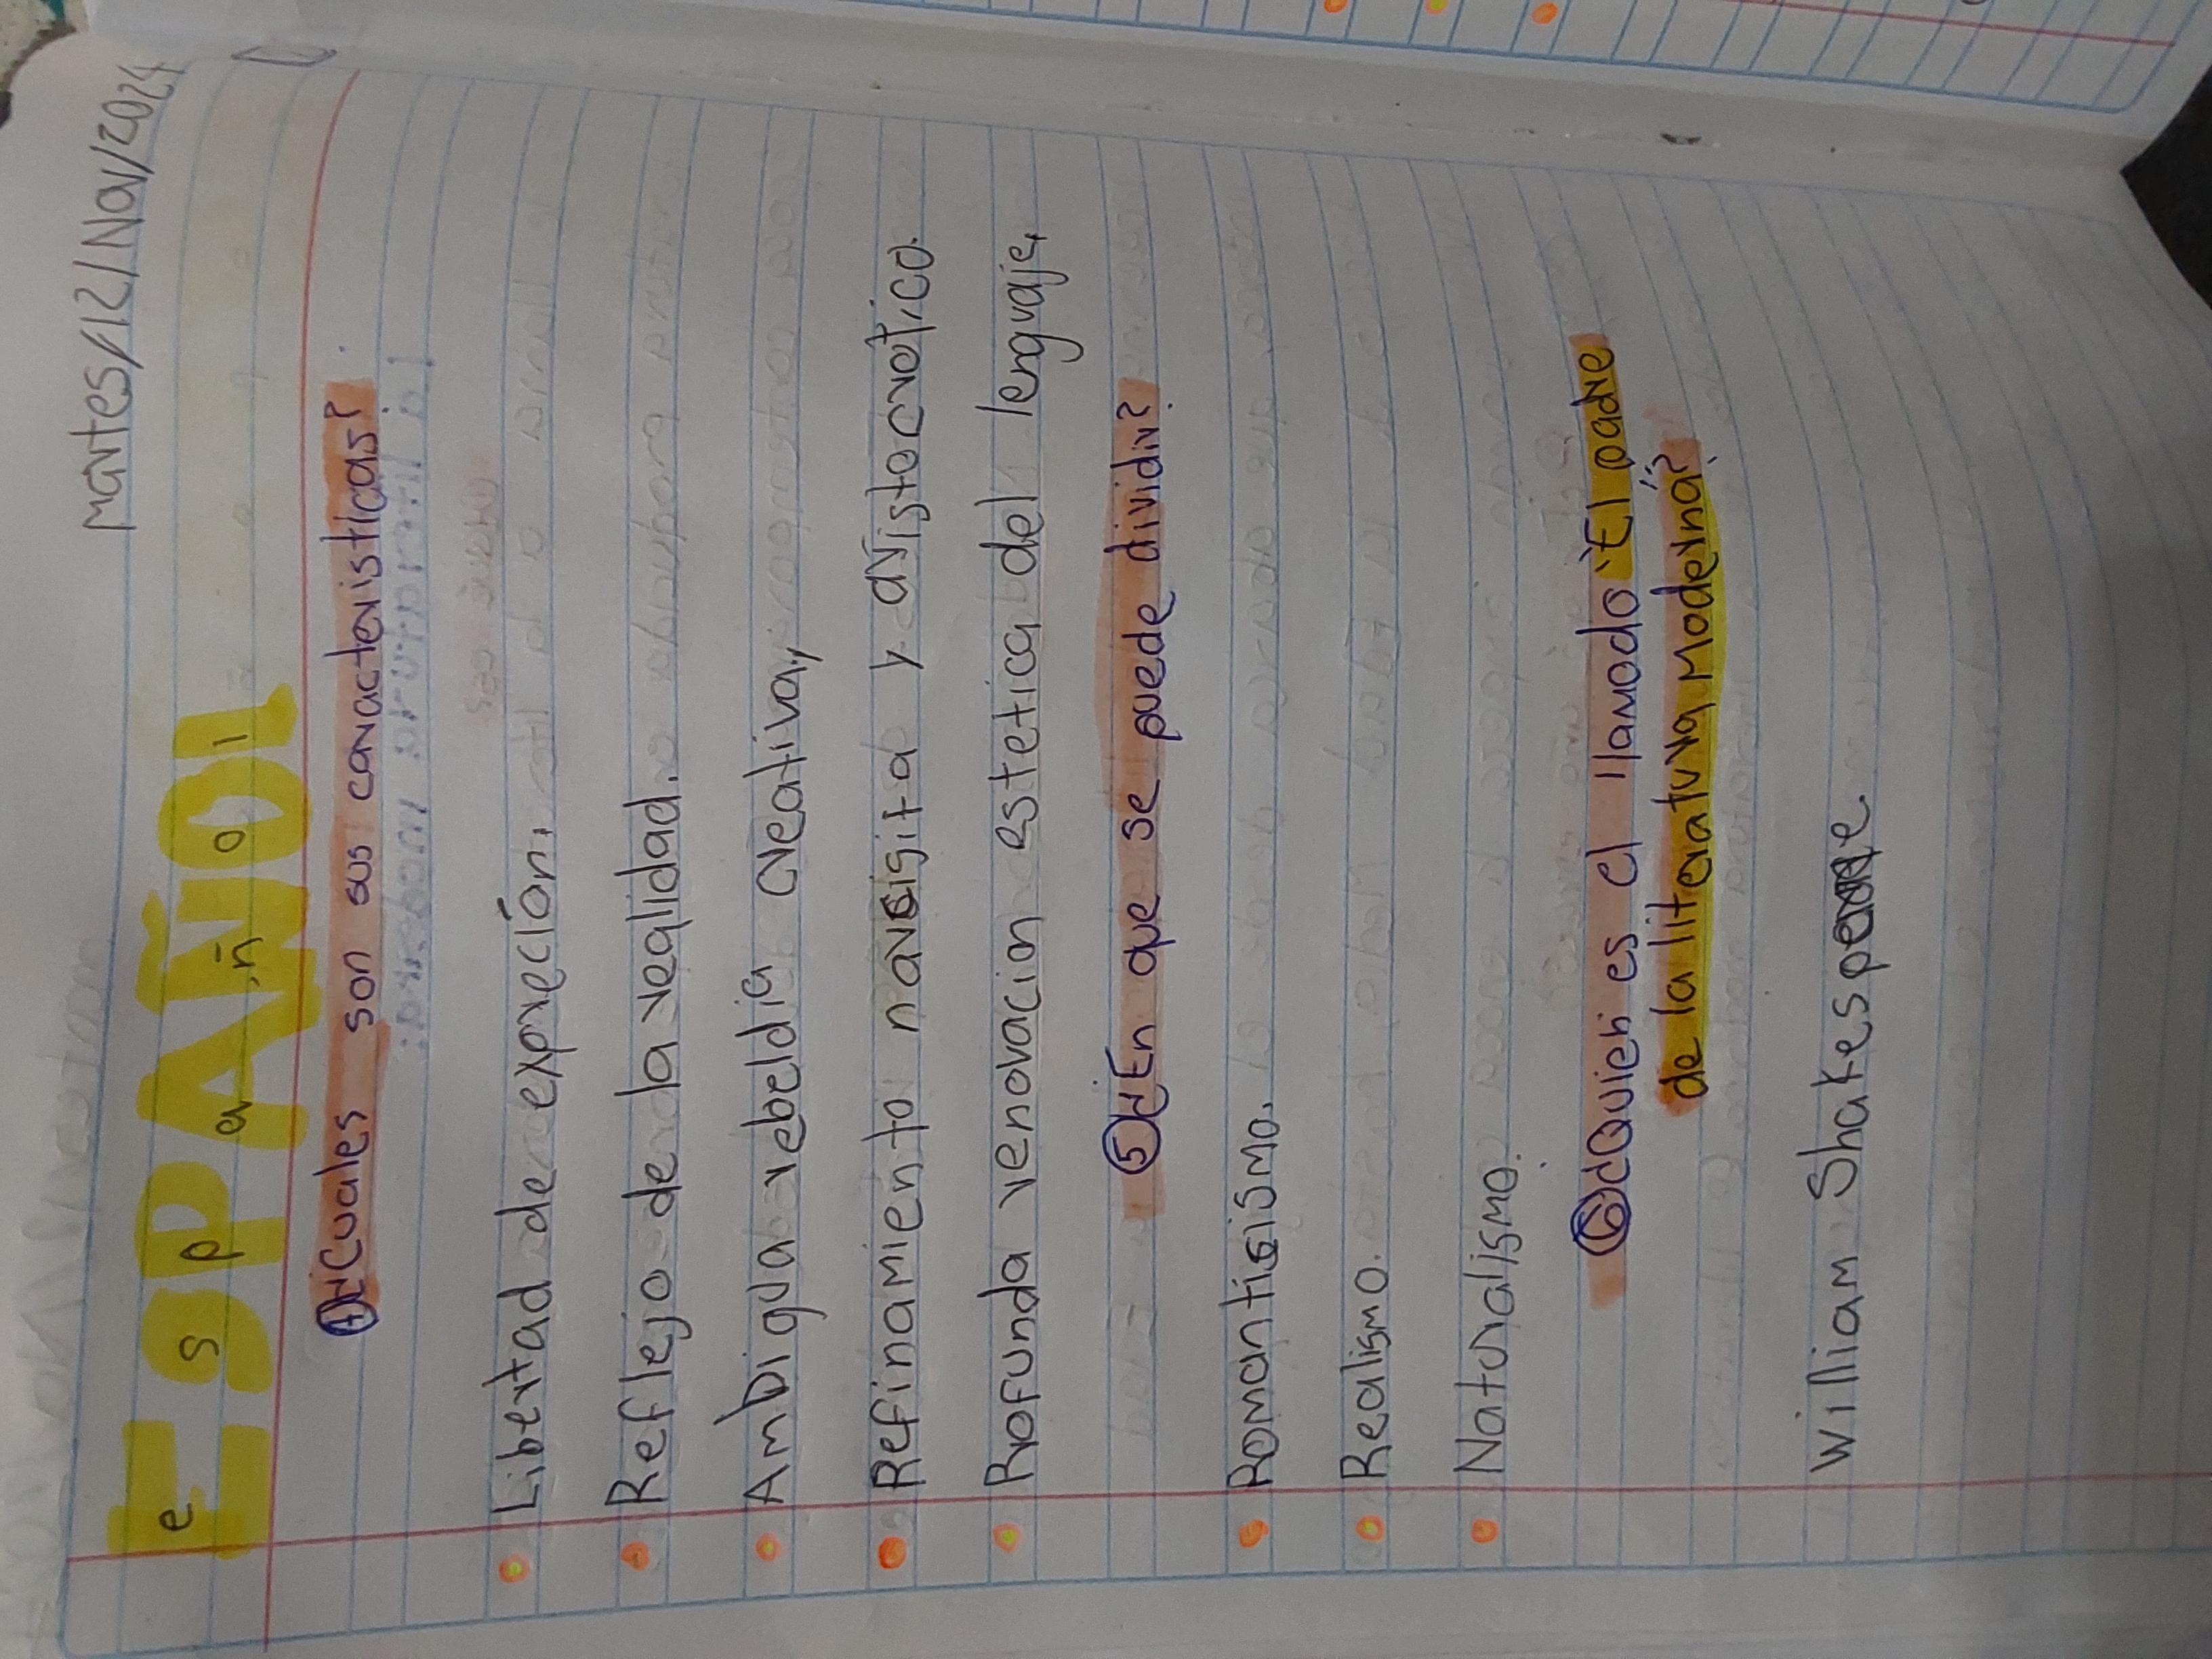 martes/12/Nov/2024
ESPAÑOl
e s p a ñ o l
4 ¿Cuales son sus caracteristicas?
Libertad de expreción.
Reflejo de la realidad.
AmBigua rebeldia creativa,
Refinamiento narsisita y aristocrático.
Profunda renovacion estetica del lenguaje,
5 ¿En que se puede dividir?
Romantisismo.
Realismo.
Naturalismo.
6 ¿Quien es el llamado "El padre
de la literatura Moderna"?
William Shakespeare.